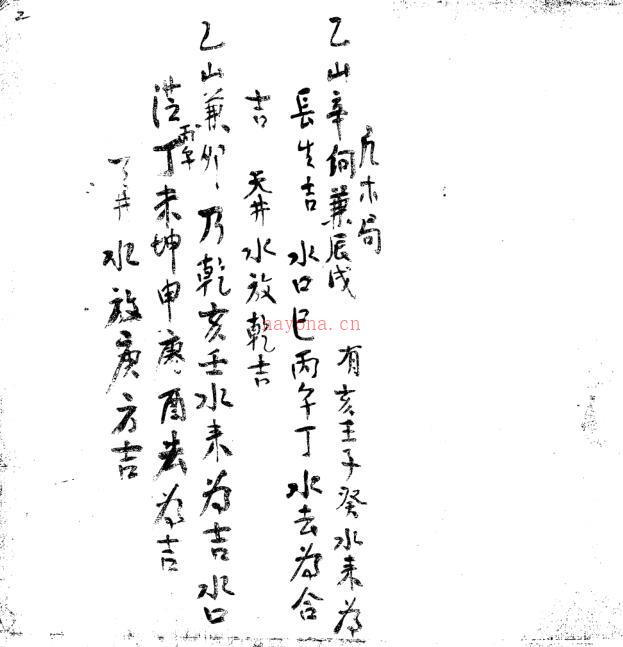 2
乙山辛向兼辰戌 有亥壬子癸水来为
木局
長生吉 水口巳丙午丁水去为合
吉 天井水放乾吉
乙山兼卯乃乾亥壬水来为吉水口
丁未坤申庚酉去为吉
丙午
井水放庚方吉
hayona.cn